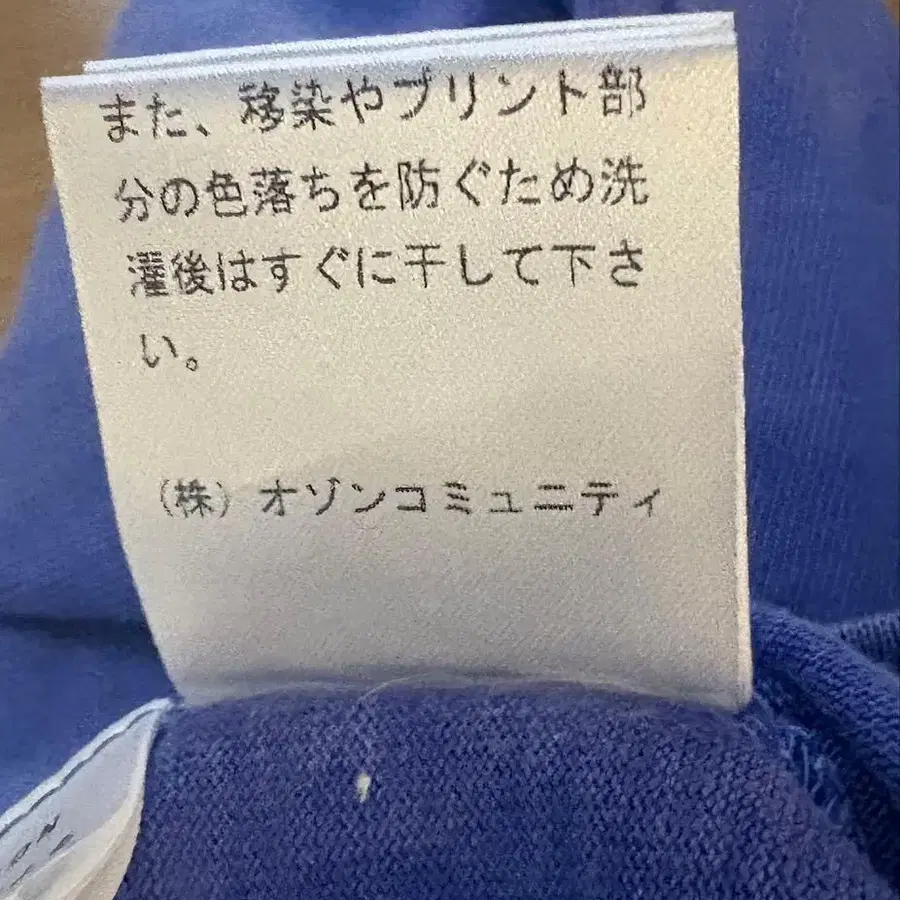 また、移染やプリント部
分の色落ちを防ぐため洗
濯後はすぐに干して下さ
い。
（株）オゾンコミュニティ